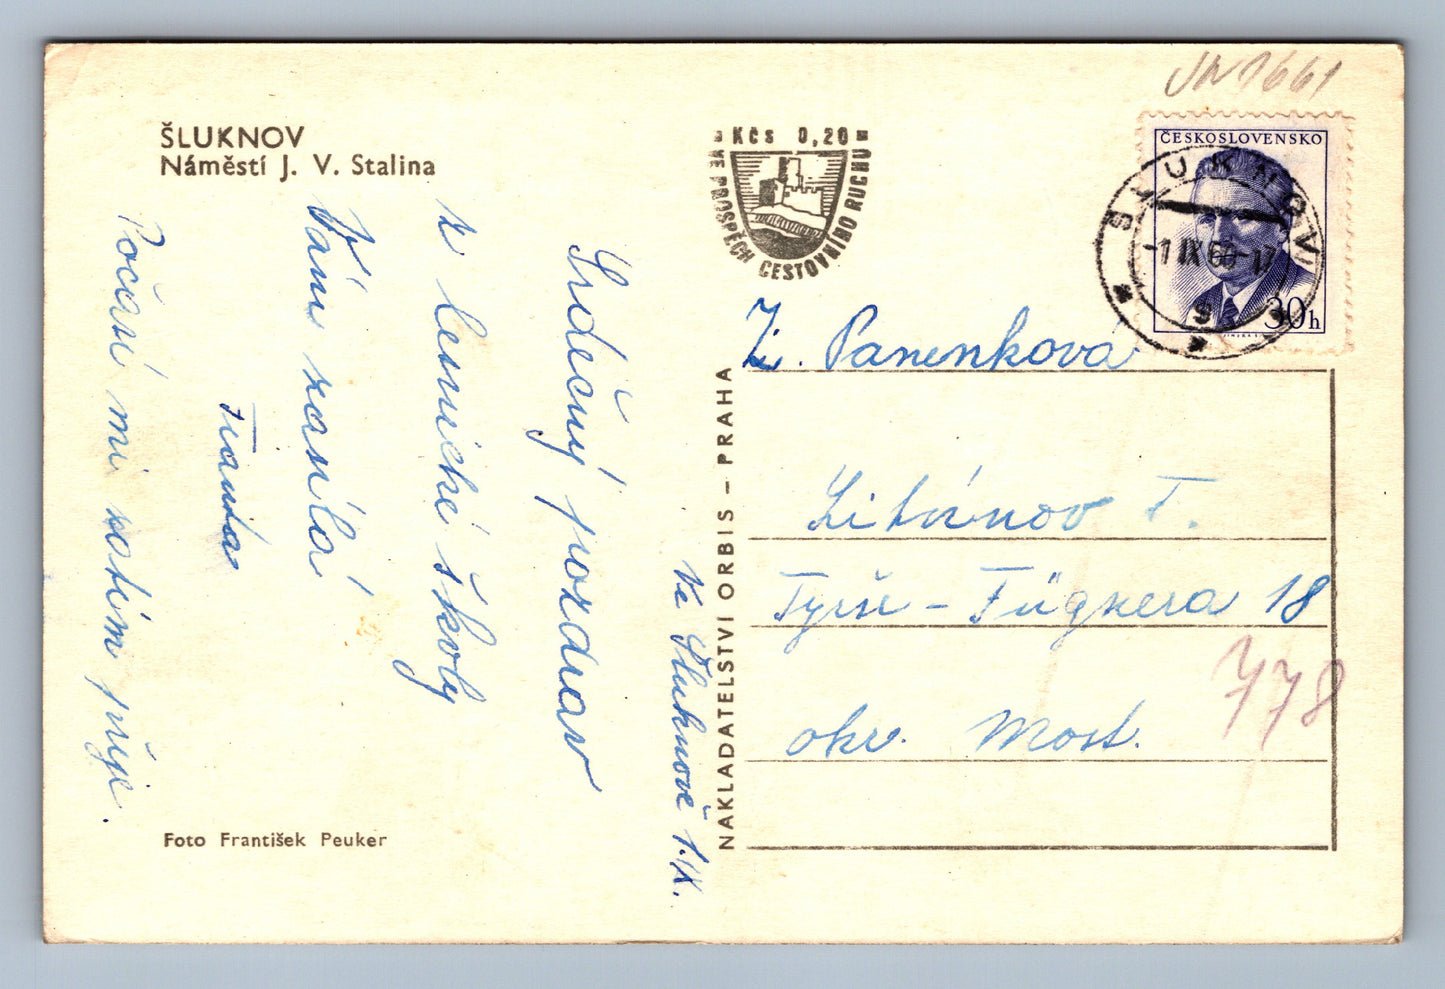 ŠLUKNOV
Náměstí J. V. Stalina
Ve Šluknově 1.IX.
Srdečný pozdrav
z lesnické školy
Vám zasílá
Franta
Počasí mi zatím přeje.
Foto František Peuker
NAKLADATELSTVÍ ORBIS – PRAHA
Kčs 0,20
VE PROSPĚCH CESTOVNÍHO RUCHU
ČESKOSLOVENSKO
30h
ŠLUKNOV
-1 IX 60-17
Panenková
Litvínov I.
Tyrše - Fügnera 18
okr. Most.
778